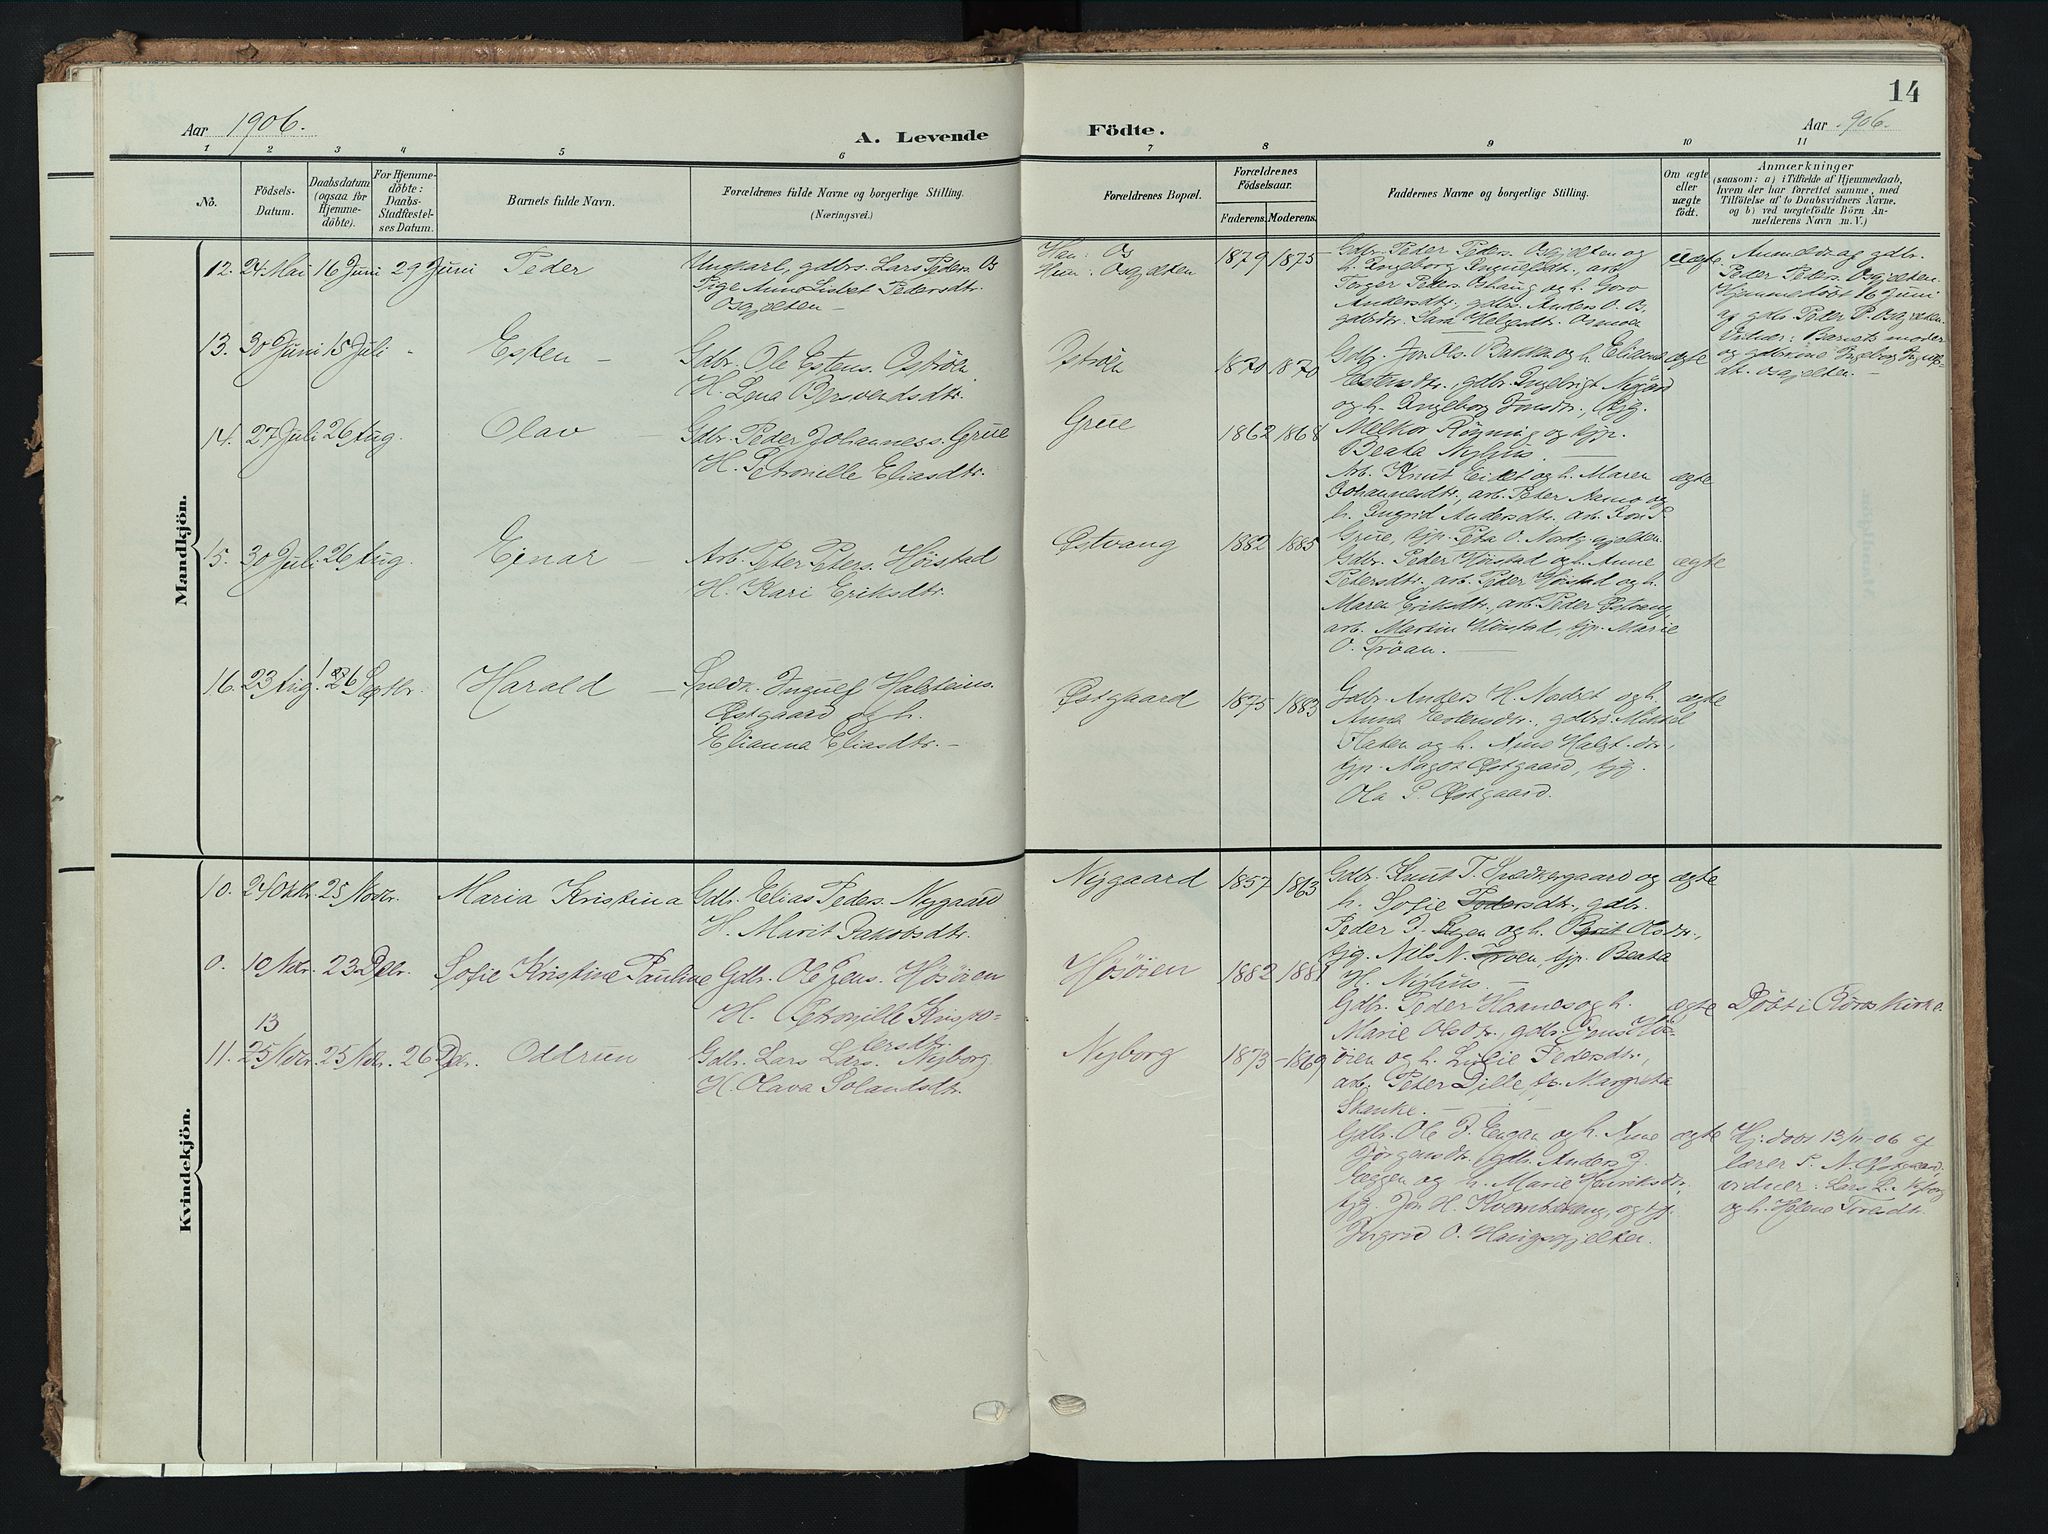 14
Aar 1906.
A. Levende Födte.
Aar 906.
1 2 3 4 5 6 7 8 9 10 11
No.
Födsels-Datum.
Daabsdatum (ogsaa for Hjemme-döbte).
For Hjemme-döbte: Daabs-Stadfæstel-ses Datum.
Barnets fulde Navn.
Forældrenes fulde Navne og borgerlige Stilling.
(Næringsvei.)
Forældrenes Bopæl.
Forældrenes Födselsaar.
Faderens. Moderens.
Faddernes Navne og borgerlige Stilling.
Om ægte eller uægte födt.
Anmærkninger
(saasom: a) i Tilfælde af Hjemmedaab,
hvem der har forrettet samme, med
Tilföielse af to Daabsvidners Navne,
og b) ved uægtefödte Börn An-
melderens Navn m. V.)
Mandkjön.
12. 24. Mai 16 Juni 29 Juni Peder
Ungkarl, gdbrs. Lars Peders. Os
Pige Anne Lisbet Pedersdtr.
Osgjelten
Han: Os
Hun: Osgjelten
1879 1875
Gdbr. Peder Peders. Osgjelten og
h. Ingeborg Ingulfsdtr., arb.
Torger Peters. Oshaug og h. Goro
Andersdtr., gdbrs. Anders O. Os,
gdbrdtr. Sara Helgesdtr. Osmoen
uægte
Anmeldt af gdbr.
Peder Peders. Osgjelten.
Hjemmedöbt 16 Juni
af gdb. Peder P. Osgjelten.
Vidner: Barnets moder
og gdbrkone Ingeborg Ingulfs-
dt. Osgjelten.
13. 30 Juni 15 Juli - Esten
Gdbr. Ole Estens. Oströen
H. Lena Bersvendsdtr.
1870 1870
Gdbr. Jon Ols. Bakken og h. Elianna
Estensdtr., gdbr. Ingebrigt Nygård
og h. Ingeborg Jonsdtr., tjg.
Melkor Röyning og tjp.
Beata Nylius.
ægte
14. 27 Juli 26 Aug. Olav
Gdbr. Peder Johanness. Grue
H. Petronille Eliasdtr.
Grue
1862 1868
Arb. Knut Eidet og h. Maren
Johannesdtr., arb. Peter Aamo og
h. Ingrid Andersdtr. arb. Jon P.
Grue, tjp. O. Nordgjelten.
ægte
15. 30 Juli 26 Aug. Ejnar
Arb. Peter Peters. Höistad
H. Kari Eriksdtr.
Östvang
1882 1885
Gdbr. Peder Höistad og h. Anne
Petersdtr. arb. Peder Höistad og h.
Maren Eriksdtr., arb. Peder Östvang,
arb. Martin Höistad, tjp. Marie
O. Tröan.
ægte
16. 23 Aug. 26 Septbr. Harald
Snedk. Inguef Halsteins.
Östgaard og h.
Elianna Eliasdtr.
Östgaard
1875 1883
Gdbr. Anders H. Nordet og h.
Anna Estensdtr., gdbrs. Mikkel
Flaten og h. Ane Halst. dtr,
tjp. Aagot Östgaard, tjg.
Ola P. Östgaard.
ægte
Kvindekjön.
10. 24 Oktbr. 25 Novbr. Maria Kristina
Gdbr. Elias Peders. Nygaard
H. Marit Jakobsdtr.
Nygaard
1857 1863
Gdbr. Knut T. Snedkergaard og
h. Sofie Pedersdtr., gdbr.
Peder J. Engen og h. Berit Olsdtr.,
tjg. Nils N. Troen, tjp. Beata
H. Nylius.
ægte
0. 10 Nvbr. 23 Debr. Sofie Kristine Pauline
Gdbr. Ole Jens. Hösöien
H. Petronille Kristo-
fersdtr.
Hösöien
1882 1881
Gdbr. Peder Haanes og h.
Marie Olsdtr., gdbr. Jens Hös-
öien og h. Lucie Pedersdtr.,
arb. Peter Dille, tp. Margreta
Skanke.
ægte Döbt i Röros Kirke.
13
11. 25 Nvbr. 25 Nvbr. 26 Dbr. Oddrun
Gdbr. Lars Lars. Nyborg
H. Olava Solandsdtr.
Nyborg
1873 1869
Gdbr. Ole J. Engan og h. Ane
Jörgensdtr., gdbr. Anders J.
Eggen og h. Marie Henriksdtr,
tjg. Jon H. Kvernberg, og tjp.
Ingrid O. Haugsgjelten.
ægte
Hj. döbt 13/11-06 af
lærer P. N. Östgaard;
vidner: Lars L. Nyborg
og h. Helene Toresdtr.